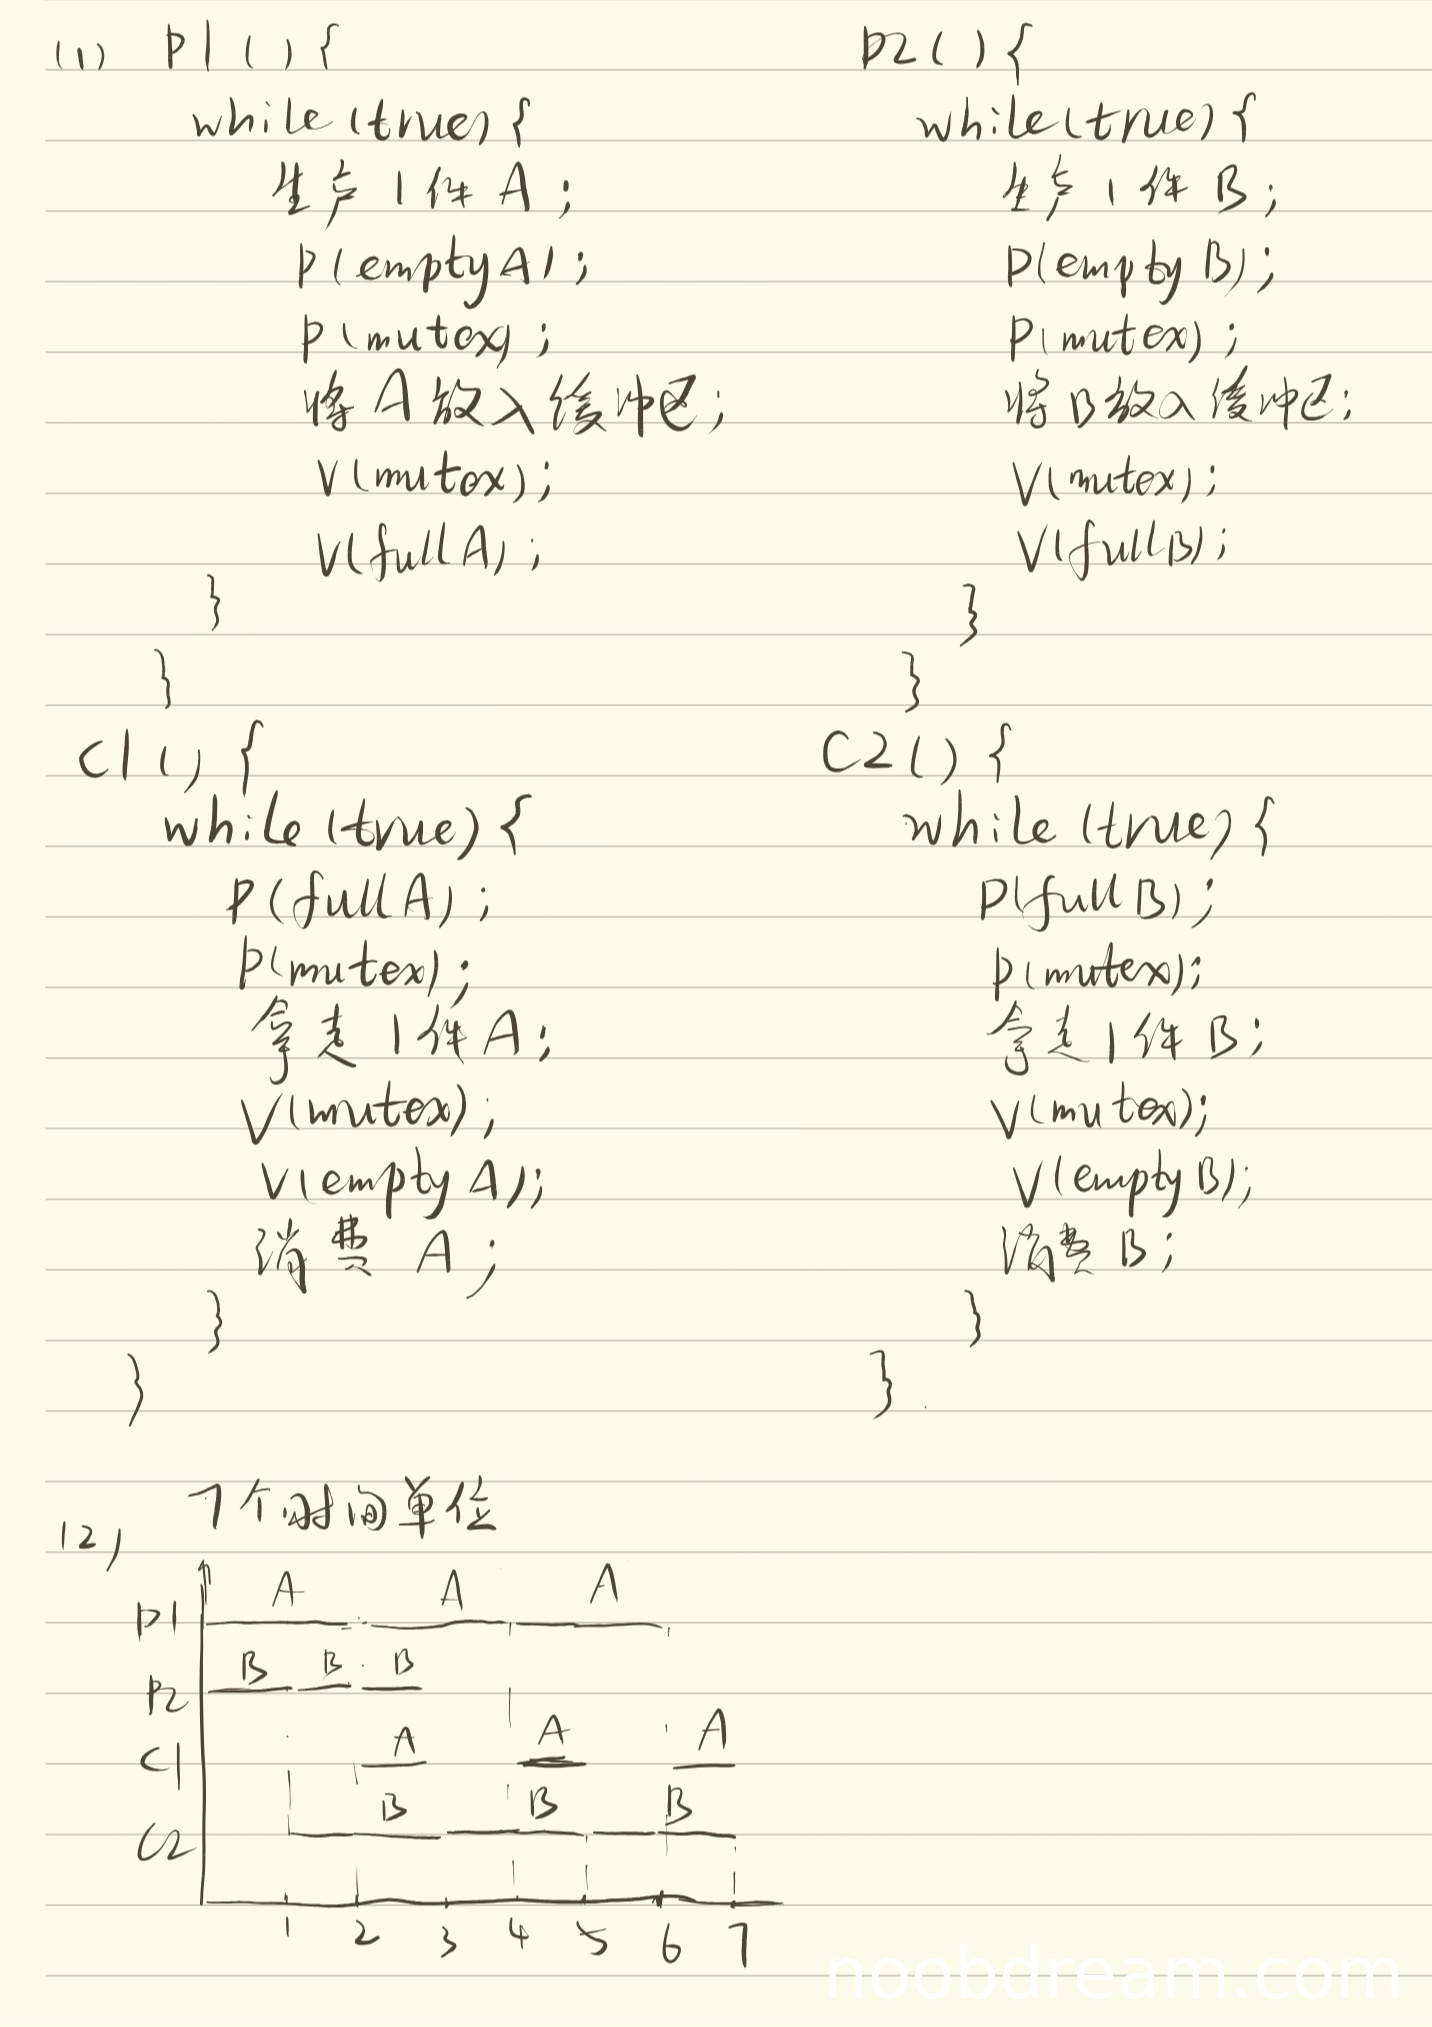 (1) P1(){
while(true){
生产1件A;
P(emptyA);
P(mutex);
将A放入缓冲区;
V(mutex);
V(fullA);
}
}
P2(){
while(true){
生产1件B;
P(emptyB);
P(mutex);
将B放入缓冲区;
V(mutex);
V(fullB);
}
}
C1(){
while(true){
P(fullA);
P(mutex);
拿走1件A;
V(mutex);
V(emptyA);
消费A;
}
}
C2(){
while(true){
P(fullB);
P(mutex);
拿走1件B;
V(mutex);
V(emptyB);
消费B;
}
}
(2) 7个时间单位
A A A
P1
B B B
P2
A A A
C1
B B B
C2
1 2 3 4 5 6 7
noobdream.com